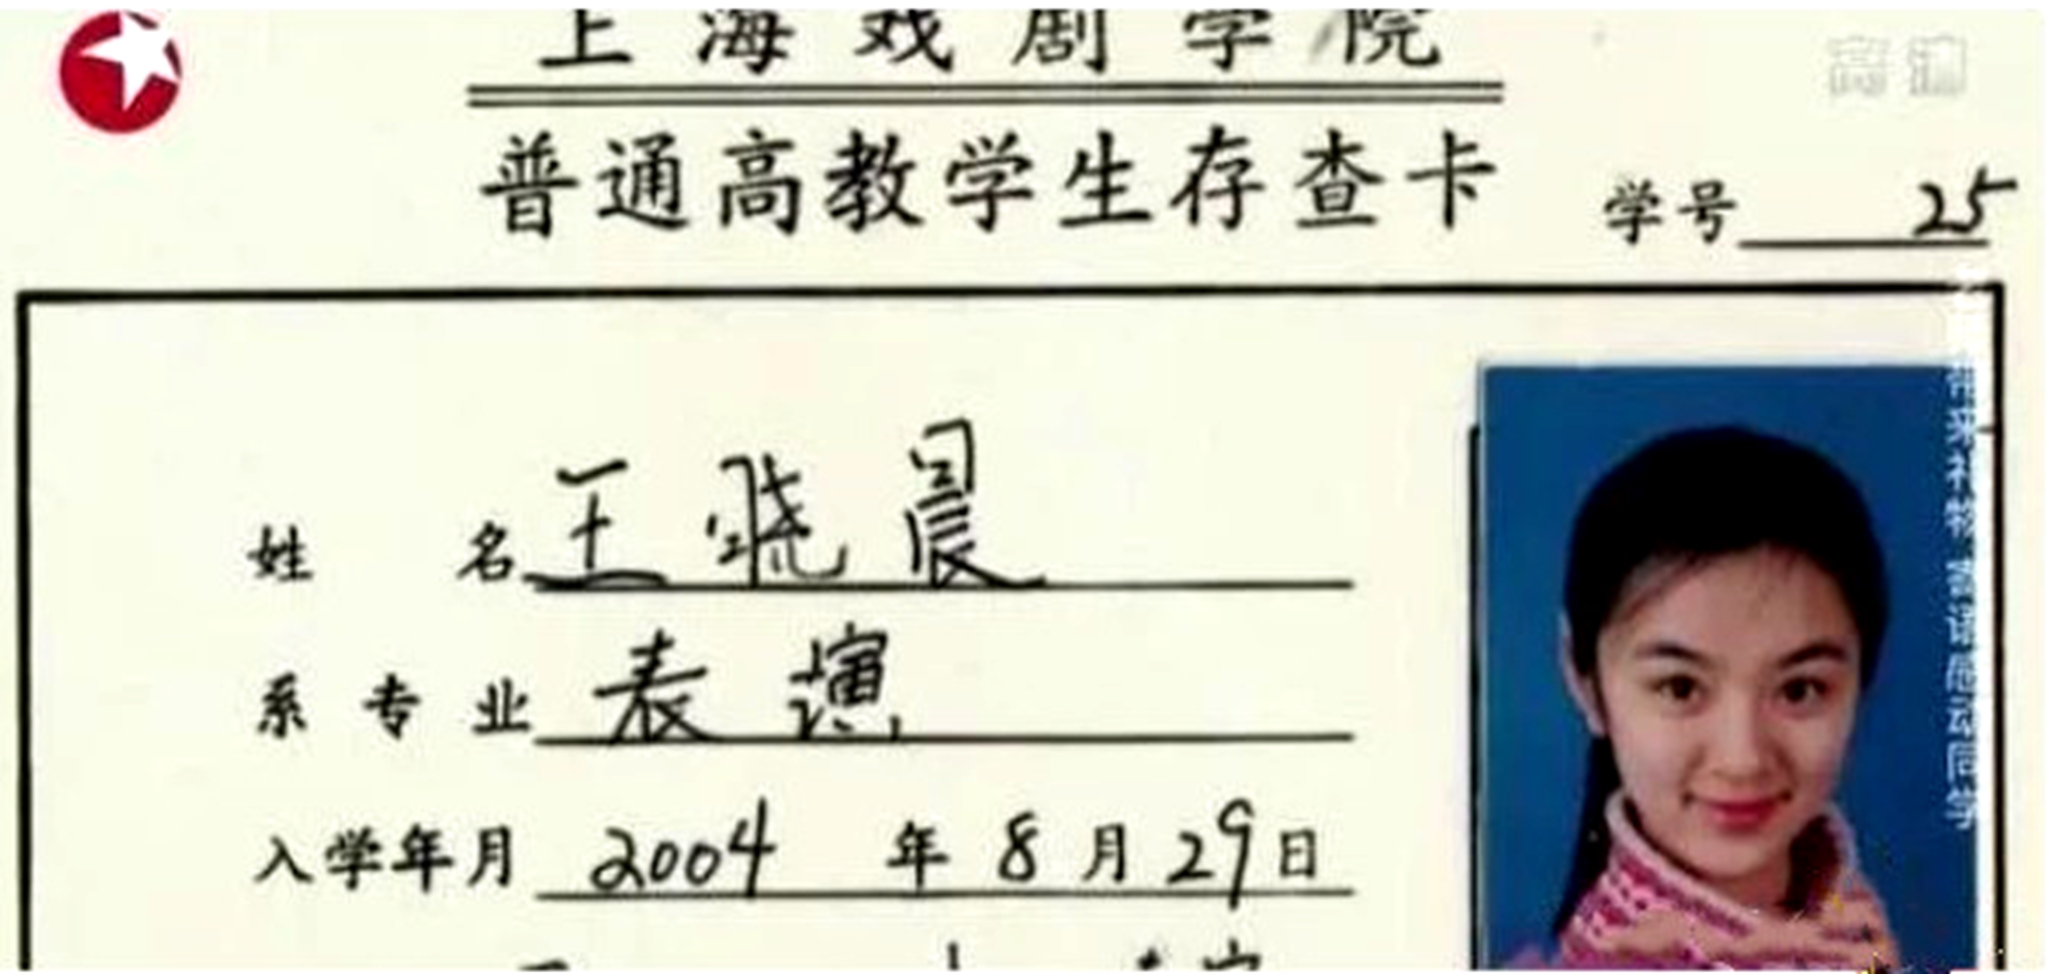 上海戏剧学院
高清
普通高教学生存查卡
学号 25
姓名 王晓晨
系专业 表演
入学年月 2004年8月29日